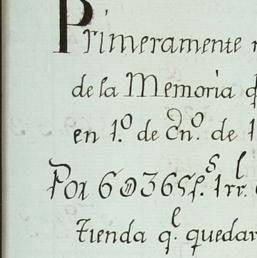 Primeramente
de la Memoria
en 1.º de En.º de 1
Por 60365 p.s 1 rr.l
tienda q.e quedar